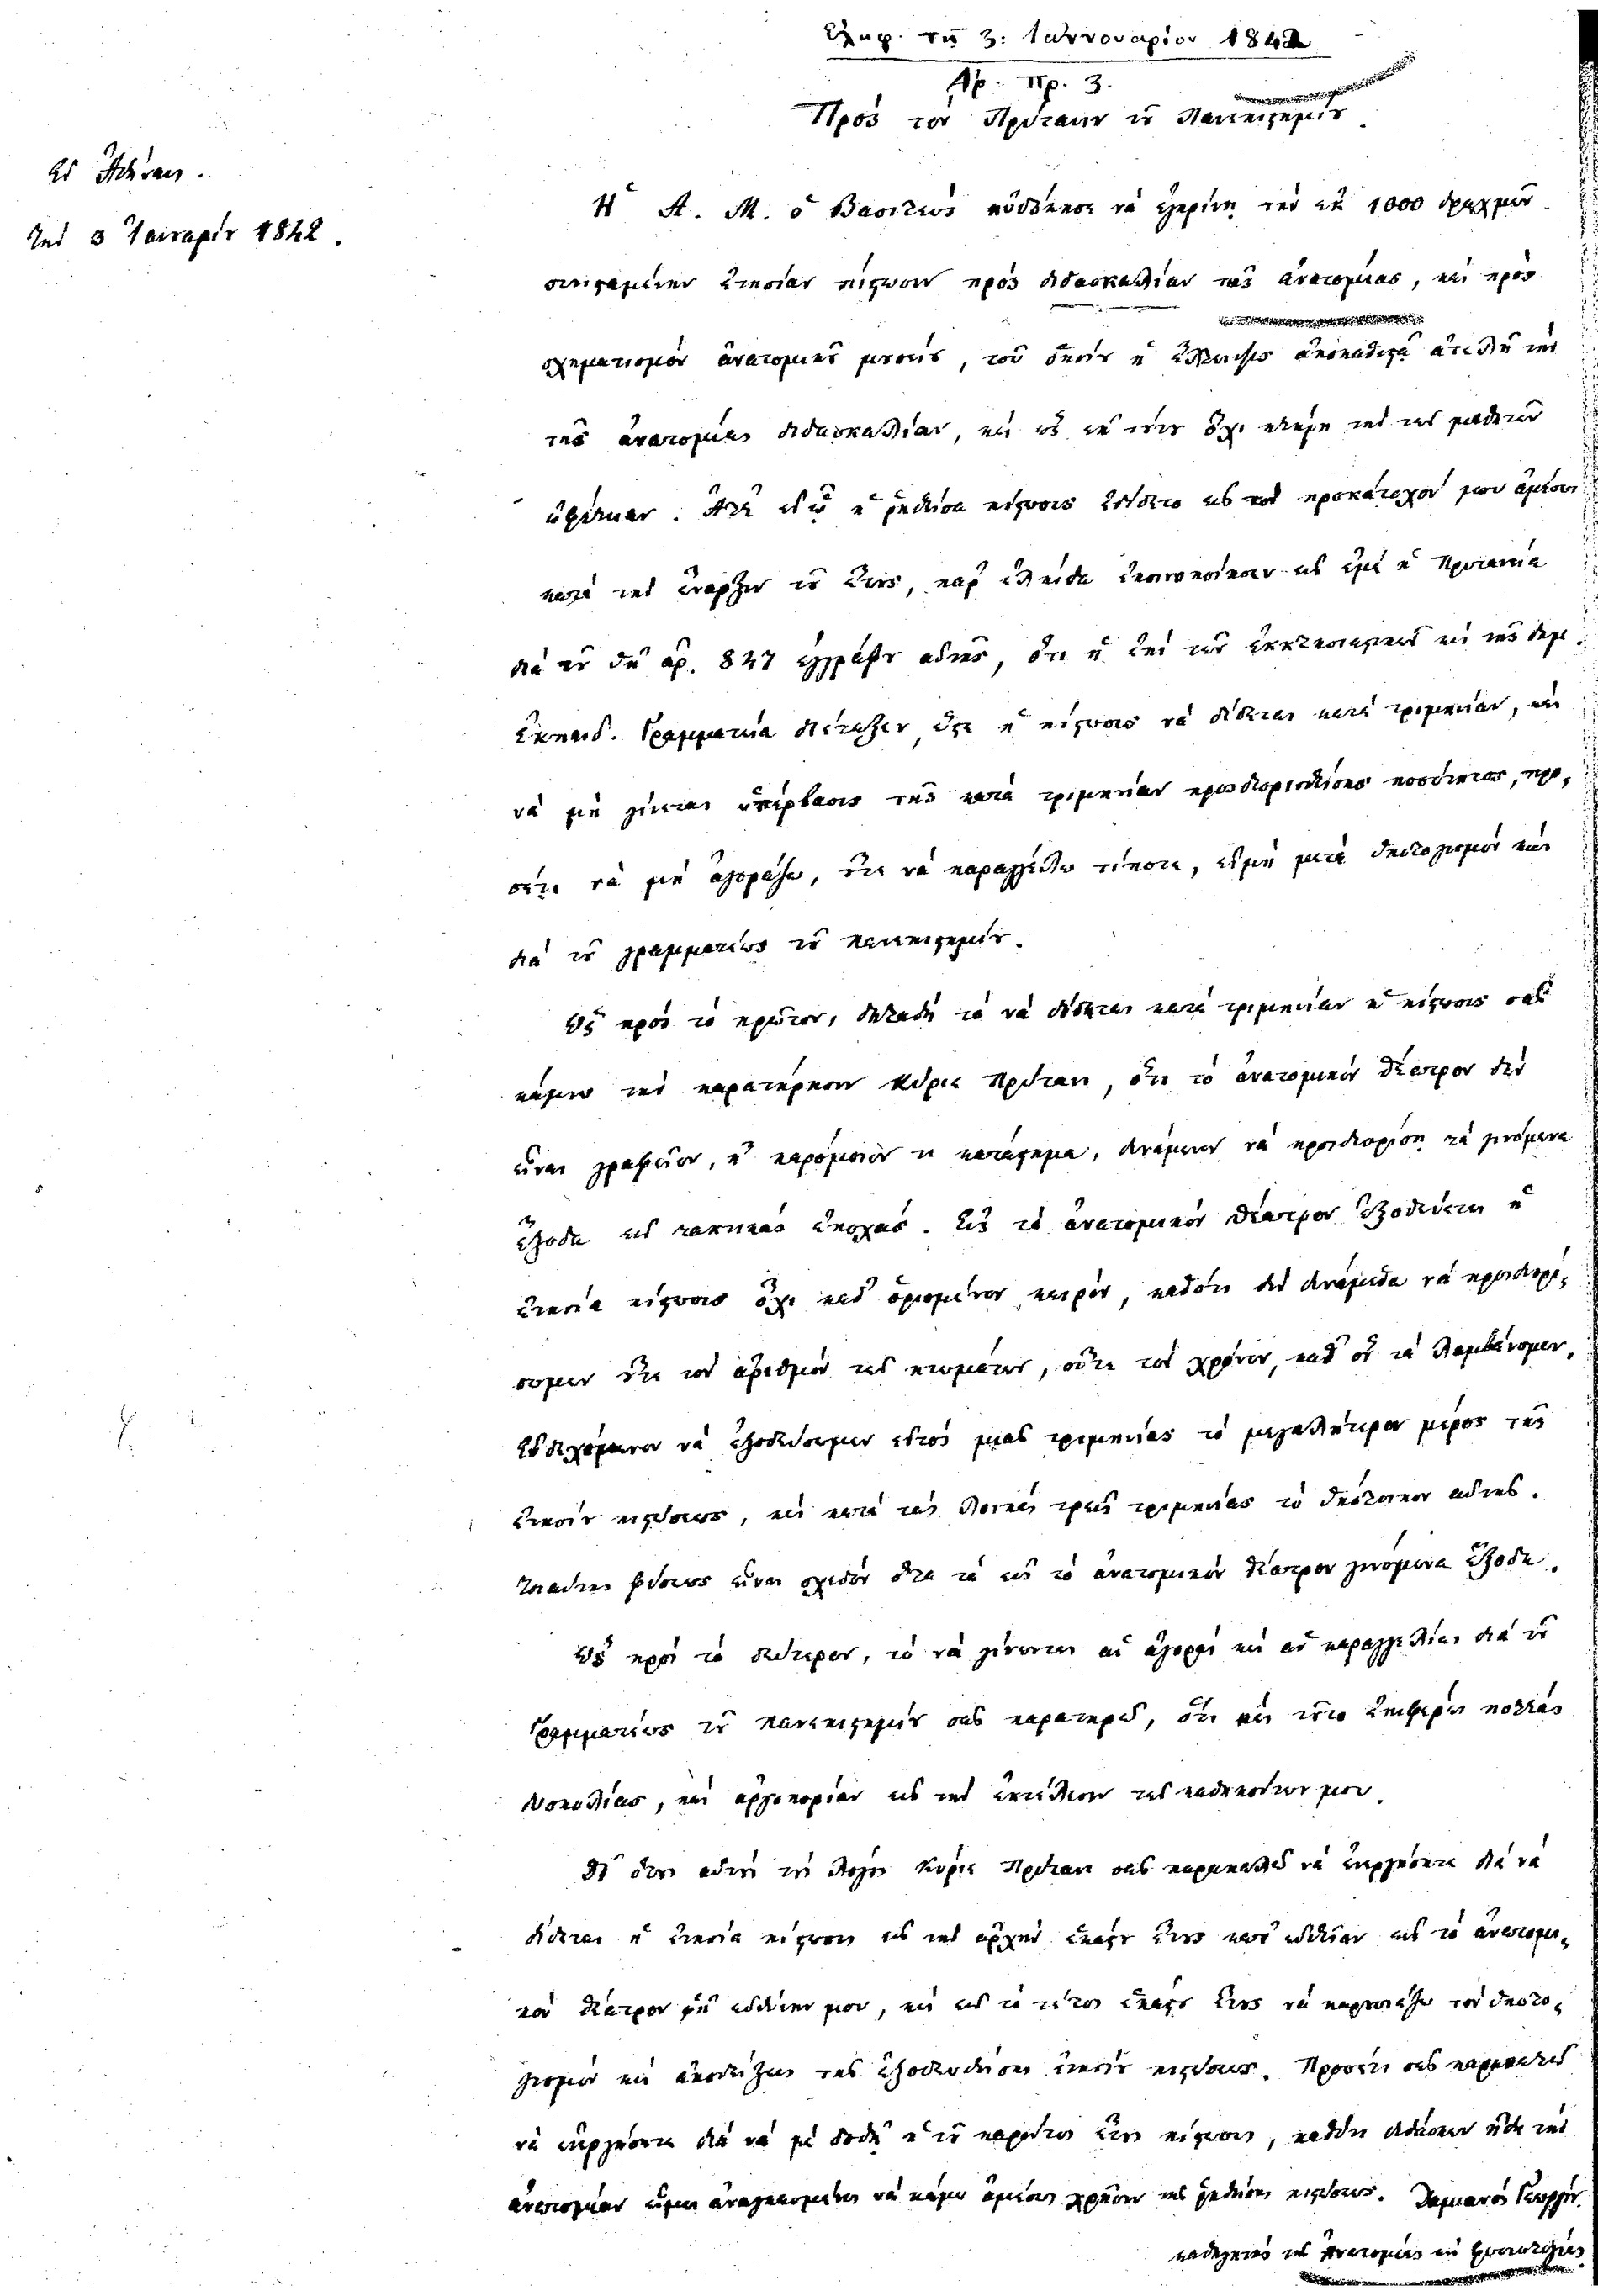 Ἐλήφ. τῇ 3: Ἰαννουαρίου 1842
Ἀρ. Πρ. 3.
Πρὸς τὸν Πρύτανιν τοῦ Πανεπιστημίου.
Ἐν Ἀθήναις.
τὴν 3 Ἰανουαρίου 1842.
Ἡ Α. Μ. ὁ Βασιλεὺς ηὐδόκησε νὰ ἐγκρίνῃ τὴν ἐκ 1000 δραχμῶν
συνισταμένην ἐτησίαν πίστωσιν πρὸς διδασκαλίαν τῆς ἀνατομίας, καὶ πρὸς
σχηματισμὸν ἀνατομικοῦ μουσείου, τοῦ ὁποίου ἡ ἔλλειψις ἀποκαθιστᾷ ἀτελῆ τὴν
τῆς ἀνατομίας διδασκαλίαν, καὶ ὡς ἐκ τούτου ὄχι πλήρη τὴν τῶν μαθητῶν
ὠφέλειαν. Ἀλλ' ἐνῷ ἡ ῥηθεῖσα πίστωσις ἐδίδετο εἰς τὸν προκάτοχόν μου ἀμέσως
κατὰ τὴν ἔναρξιν τοῦ ἔτους, παρ' ἐλπίδα ἐκοινοποίησεν εἰς ἐμὲ ἡ Πρυτανεία
διὰ τοῦ ὑπ' ἀρ. 847 ἐγγράφου αὐτῆς, ὅτι ἡ ἐπὶ τῶν ἐκκλησιαστικῶν καὶ τῆς δημ.
Ἐκπαιδ. Γραμματεία διέταξεν, ὥστε ἡ πίστωσις νὰ δίδεται κατὰ τριμηνίαν, καὶ
νὰ μὴ γίνεται ὑπέρβασις τῆς κατὰ τριμηνίαν προσδιορισθείσης ποσότητος, προ-
σέτι νὰ μὴ ἀγοράζω, οὔτε νὰ παραγγέλλω τίποτε, εἰμὴ μετὰ ὑπολογισμὸν καὶ
διὰ τοῦ γραμματέως τοῦ πανεπιστημίου.
Ὡς πρὸς τὸ πρῶτον, δηλαδὴ τὸ νὰ δίδεται κατὰ τριμηνίαν ἡ πίστωσις σᾶς
κάμνω τὴν παρατήρησιν Κύριε Πρύτανι, ὅτι τὸ ἀνατομικὸν θέατρον δὲν
εἶναι γραφεῖον, ἢ παρόμοιόν τι κατάστημα, δυνάμενον νὰ προσδιορίσῃ τὰ γινόμενα
ἔξοδα εἰς τακτικὰς ἐποχάς. Εἰς τὸ ἀνατομικὸν θέατρον ἐξοδεύεται ἡ
ἐτησία πίστωσις ὄχι καθ' ὡρισμένον καιρόν, καθότι δὲν δυνάμεθα νὰ προσδιορί-
σωμεν οὔτε τὸν ἀριθμὸν τῶν πτωμάτων, οὔτε τὸν χρόνον, καθ' ὃν τὰ λαμβάνομεν.
Ἐνδεχόμενον νὰ ἐξοδεύσωμεν ἐντὸς μιᾶς τριμηνίας τὸ μεγαλήτερον μέρος τῆς
ἐτησίου πιστώσεως, καὶ κατὰ τὰς λοιπὰς τρεῖς τριμηνίας τὸ ὑπόλοιπον αὐτῆς.
Τοιαύτης φύσεως εἶναι σχεδὸν ὅλα τὰ εἰς τὸ ἀνατομικὸν θέατρον γινόμενα ἔξοδα.
Ὡς πρὸς τὸ δεύτερον, τὸ νὰ γίνωνται αἱ ἀγοραὶ καὶ αἱ παραγγελίαι διὰ τοῦ
Γραμματέως τοῦ Πανεπιστημίου σᾶς παρατηρῶ, ὅτι καὶ τοῦτο ἐπιφέρει πολλὰς
δυσκολίας, καὶ ἀργοπορίαν εἰς τὴν ἐκτέλεσιν τῶν καθηκόντων μου.
Δι' ὅλους αὐτοὺς τοὺς λόγους Κύριε Πρύτανι σᾶς παρακαλῶ νὰ ἐνεργήσητε διὰ νὰ
δίδεται ἡ ἐτησία πίστωσις εἰς τὴν ἀρχὴν ἑκάστου ἔτους κατ' εὐθεῖαν εἰς τὸ ἀνατομι-
κὸν θέατρον μὲ εὐθύνην μου, καὶ εἰς τὸ τέλος ἑκάστου ἔτους νὰ παρουσιάζω τὸν ὑπολο-
γισμὸν καὶ ἀποδείξεις τῆς ἐξοδευθείσης ἐτησίου πιστώσεως. Προσέτι σᾶς παρακαλῶ
νὰ ἐνεργήσητε διὰ νὰ μὲ δοθῇ ἡ τοῦ παρόντος ἔτους πίστωσις, καθότι διδάσκων ἤδη τὴν
ἀνατομίαν εἶμαι ἀναγκασμένος νὰ κάμω ἀμέσως χρῆσιν τῆς ῥηθείσης πιστώσεως. Δαμιανὸς Γεωργίου
καθηγητὴς τῆς Ἀνατομίας καὶ Φυσιολογίας